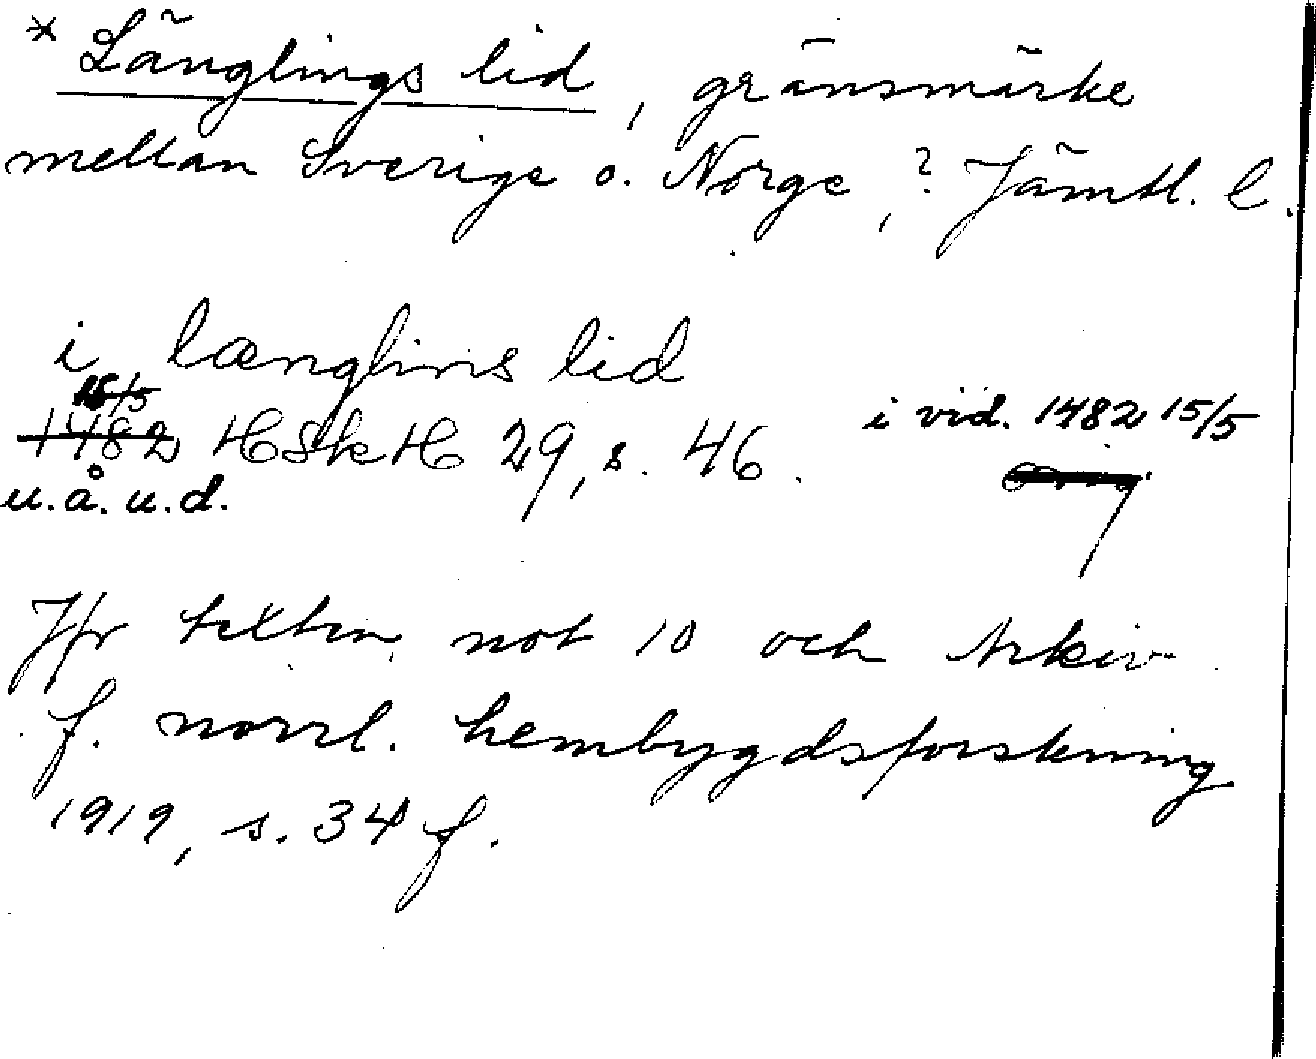 * Länglings lid, gränsmärke
mellan Sverige o. Norge, ? Jämtl. l.
i længlings lid
15/5
1482 HSkH 29, s. 46. i vid. 1482 15/5
u.å. u.d. Orig.
Jfr texten, not 10 och Arkiv
f. norrl. hembygdsforskning
1919, s. 34 f.